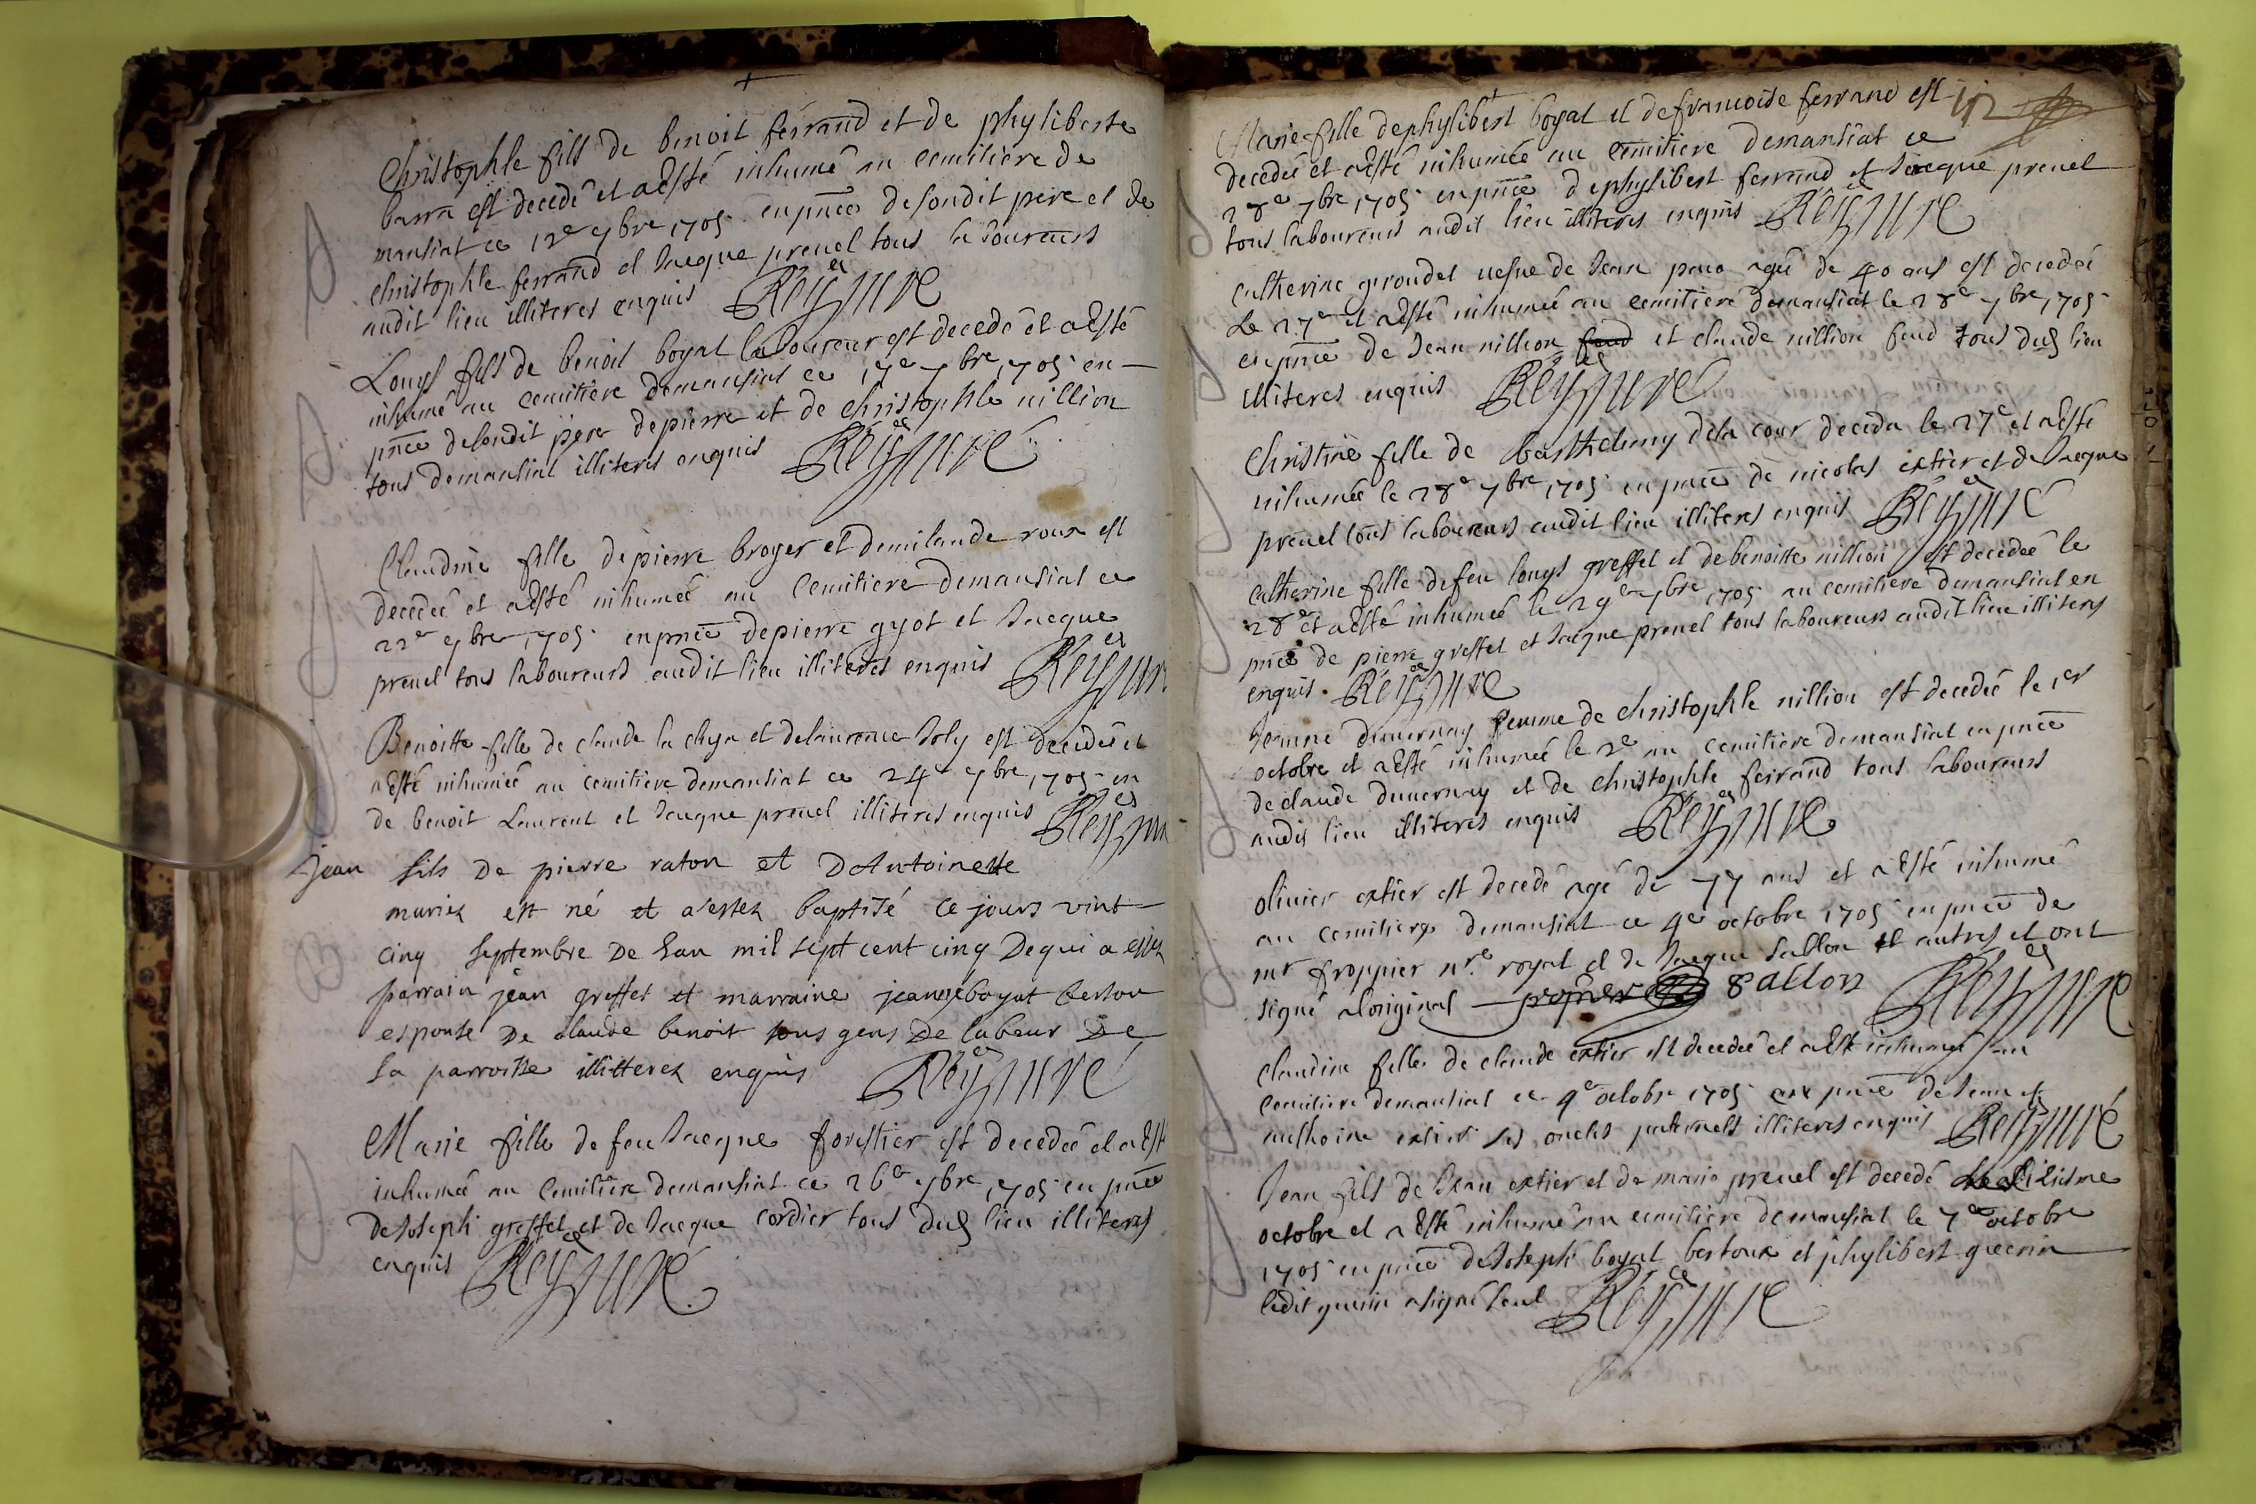 Christophle fils de benoit ferrand et de phyliberte
barra est decedé et a esté inhumé au cemitiere de
mansiat ce 12e 7bre 1705 en pnce desondit pere et de
christophle ferrand et Jacque preuel tous laboureurs
audit lieu illiteres enquis Reyssure
Louys fils de benoit boyat laboureur est decedé et a esté
inhumé au cemitiere demansiat ce 17e 7bre 1705 en
pnce desondit pere depierre et de christophle nillion
tous demansiat illiteres enquis Reyssure
Claudine fille depierre broyer et demilande roux est
decedeé et a esté inhumeé au cemitiere demansiat ce
22e 7bre 1705 enpnce depierre gyot et Jacque
preuel tous laboureurs audit lieu illiteres enquis
Benoitte fille de claude la chya et delaurence Joly est decedeé et
a esté inhumeé au cemitiere demansiat ce 24e 7bre 1705 en
de benoit Laurent et Jacque preuel illiteres enquis
jean fils De pierre raton et Dantoinette
muriez est né et a estez baptisé ce jours vint
cinq septembre De lan mil sept cent cinq Dequi a estez
parrain jean greffet et marraine jeanne boyat berton
espouse De claude benoit tous gens De labeur De
la parroisse illitterez enquis Reyssure
Marie fille de feu Jacque forestier est decedeé et a est
inhumeé au cemitiere demansiat ce 26e 7bre 1705 en pnce
deJoseph greffet et de Jacque cordier tous dud lieu illiteres
enquis Reyssure
112
Marie fille dephylibert boyat et defrancoise ferrand est
decedeé et a esté inhumeé au cemitiere demansiat ce
28e 7bre 1705 en pnce dephylibert ferrand et Jacque preuel
tous laboureurs audit lieu illiteres enquis Reyssure
catherine giroudet uefue de Jean agé de 40 ans est decedeé
Le 27e et a esté inhumeé au cemitiere demansiat le 28e 7bre 1705
enpnce de Jean nillion et claude nillion feud tous dud lieu
illiteres enquis Reyssure
christine fille de barthelemy dela cour deceda le 27e et a esté
inhumeé le 28e 7bre 1705 en pnce de nicolas extier et de Jacque
preuel tous laboureurs audit lieu illiteres enquis Reyssure
catherine fille defeu louys greffet et debenoitte nillion est decedeé le
28e et a esté inhumeé le 29e 7bre 1705 au cemitiere demansiat en
pnce de pierre greffet et Jacque preuel tous laboureurs audit lieu illiteres
enquis. Reyssure
Jeanne duuernay femme de christophle nillion est decedeé le 1er
octobre et a esté inhumeé le 2e au cemitiere demansiat en pnce
declaude duuernay et de christophle ferrand tous laboureurs
audit lieu illiteres enquis Reyssure
olivier extier est decedé agé de 77 ans et a esté inhumé
au cemitiere demansiat ce 4e octobre 1705 en pnce de
mr froppier nre royal et de Jacque Sallon et autres et ont
signé aloriginal Sallon Reyssure
claudine fille de claude extier est decedeé et a esté inhumeé au
cemitiere demansiat ce 4e octobre 1705 en pnce de Jean et
anthoine extier ses oncles paternels illiteres enquis Reyssure
Jean fils de Jean extier et de marie preuel est decedé le sixiesme
octobre et a esté inhumé au cemitiere demansiat le 7e octobre
1705 en pnce deJoseph boyat bertoux et phylibert guerin
ledit guerin a signé seul Reyssure